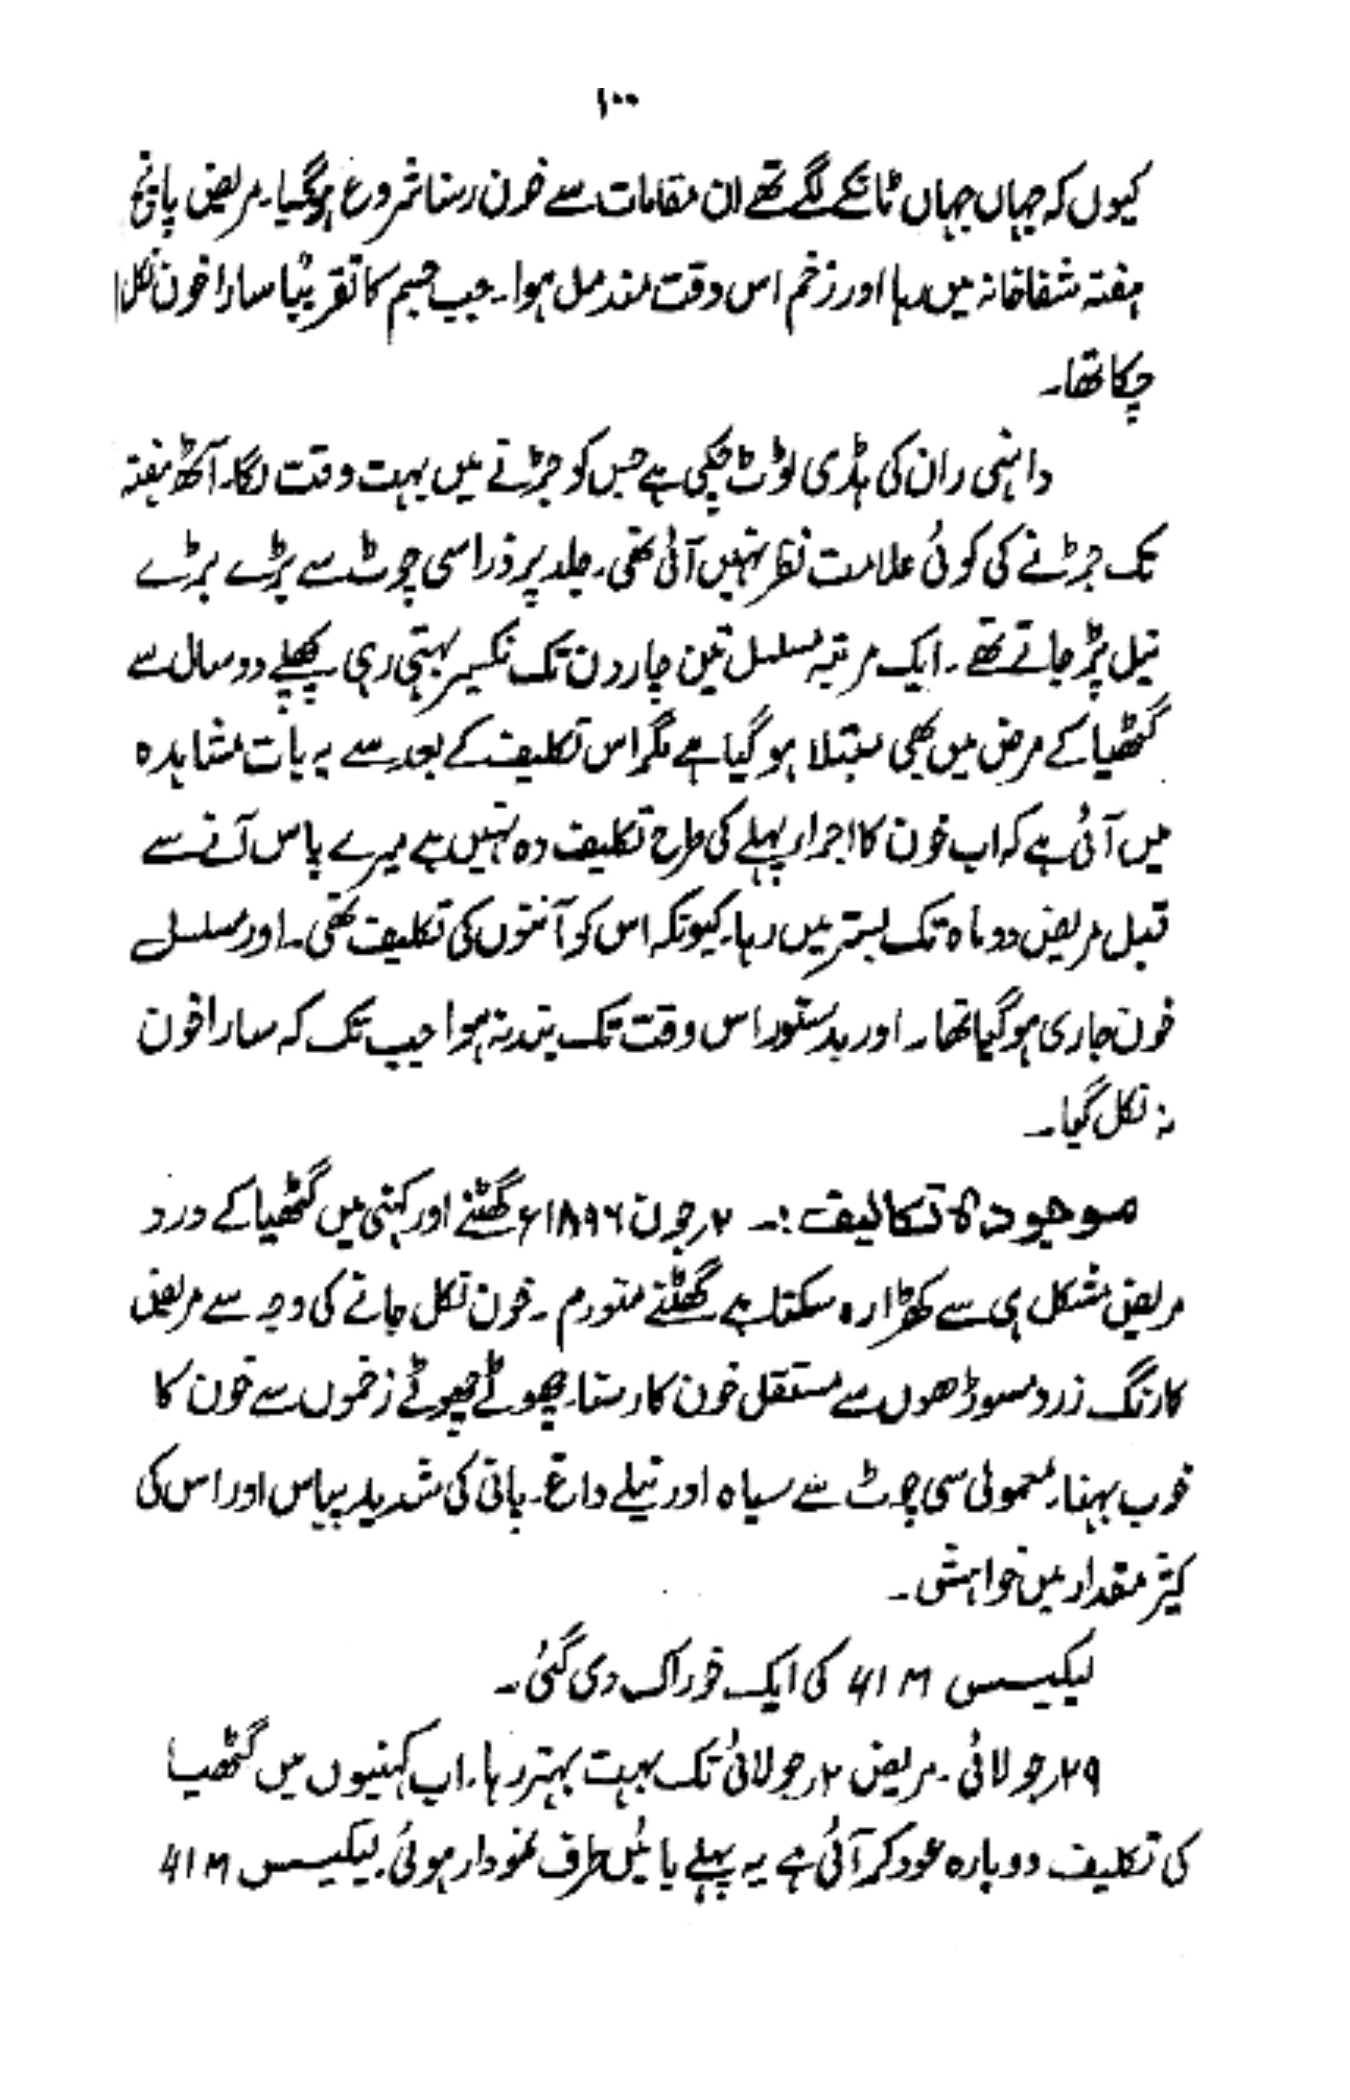 ۱۰۰
کیوں کہ جہاں جہاں ٹانکے لگے تھے ان مقامات سے خون رسنا شروع ہوگیا۔ مریض پانچ
ہفتہ شفاخانہ میں رہا اور زخم اس وقت مندمل ہوا۔ جب جسم کا تقریبًا سارا خون نکل
چکا تھا۔
داہنی ران کی ہڈی ٹوٹ چکی ہے جس کو جڑنے میں بہت وقت لگا۔ آٹھ ہفتہ
تک جڑنے کی کوئی علامت نظر نہیں آئی تھی۔ جلد پر ذرا سی چوٹ سے بڑے بڑے
نیل پڑ جاتے تھے۔ ایک مرتبہ مسلسل تین چار دن تک نکسیر بہتی رہی۔ پچھلے دو سال سے
گٹھیا کے مرض میں بھی مبتلا ہو گیا ہے مگر اس تکلیف کے بعد سے یہ بات مشاہدہ
میں آئی ہے کہ اب خون کا اجراء پہلے کی طرح تکلیف دہ نہیں ہے میرے پاس آنے سے
قبل مریض دو ماہ تک بستر میں رہا۔ کیونکہ اس کو آنتوں کی تکلیف تھی۔ اور مسلسل
خون جاری ہو گیا تھا۔ اور بدستور اس وقت تک بند نہ ہوا جب تک کہ سارا خون
نہ نکل گیا۔
موجودہ تکالیف :۔ ۲؍جون ۱۸۹۶ء گھٹنے اور کہنی میں گٹھیا کے درد
مریض مشکل ہی سے کھڑا رہ سکتا ہے۔ گھٹنے متورم۔ خون نکل جانے کی وجہ سے مریض
کا رنگ زرد مسوڑھوں سے مستقل خون کا رسنا۔ چھوٹے چھوٹے زخموں سے خون کا
خوب بہنا۔ معمولی سی چوٹ سے سیاہ اور نیلے داغ۔ پانی کی شدید پیاس اور اس کی
کثیر مقدار میں خواہش۔
لیکیسس 41M کی ایک خوراک دی گئی۔
۲۹؍جولائی۔ مریض ۲؍جولائی تک بہت بہتر رہا۔ اب کہنیوں میں گٹھیا
کی تکلیف دوبارہ عود کر آئی ہے یہ پہلے بائیں طرف نمودار ہوئی۔ لیکیسس 41M